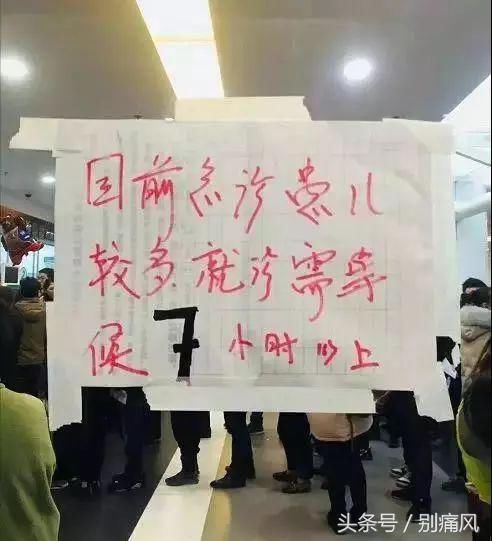 目前急诊患儿
较多就诊需等
候7小时以上
头条号／别痛风